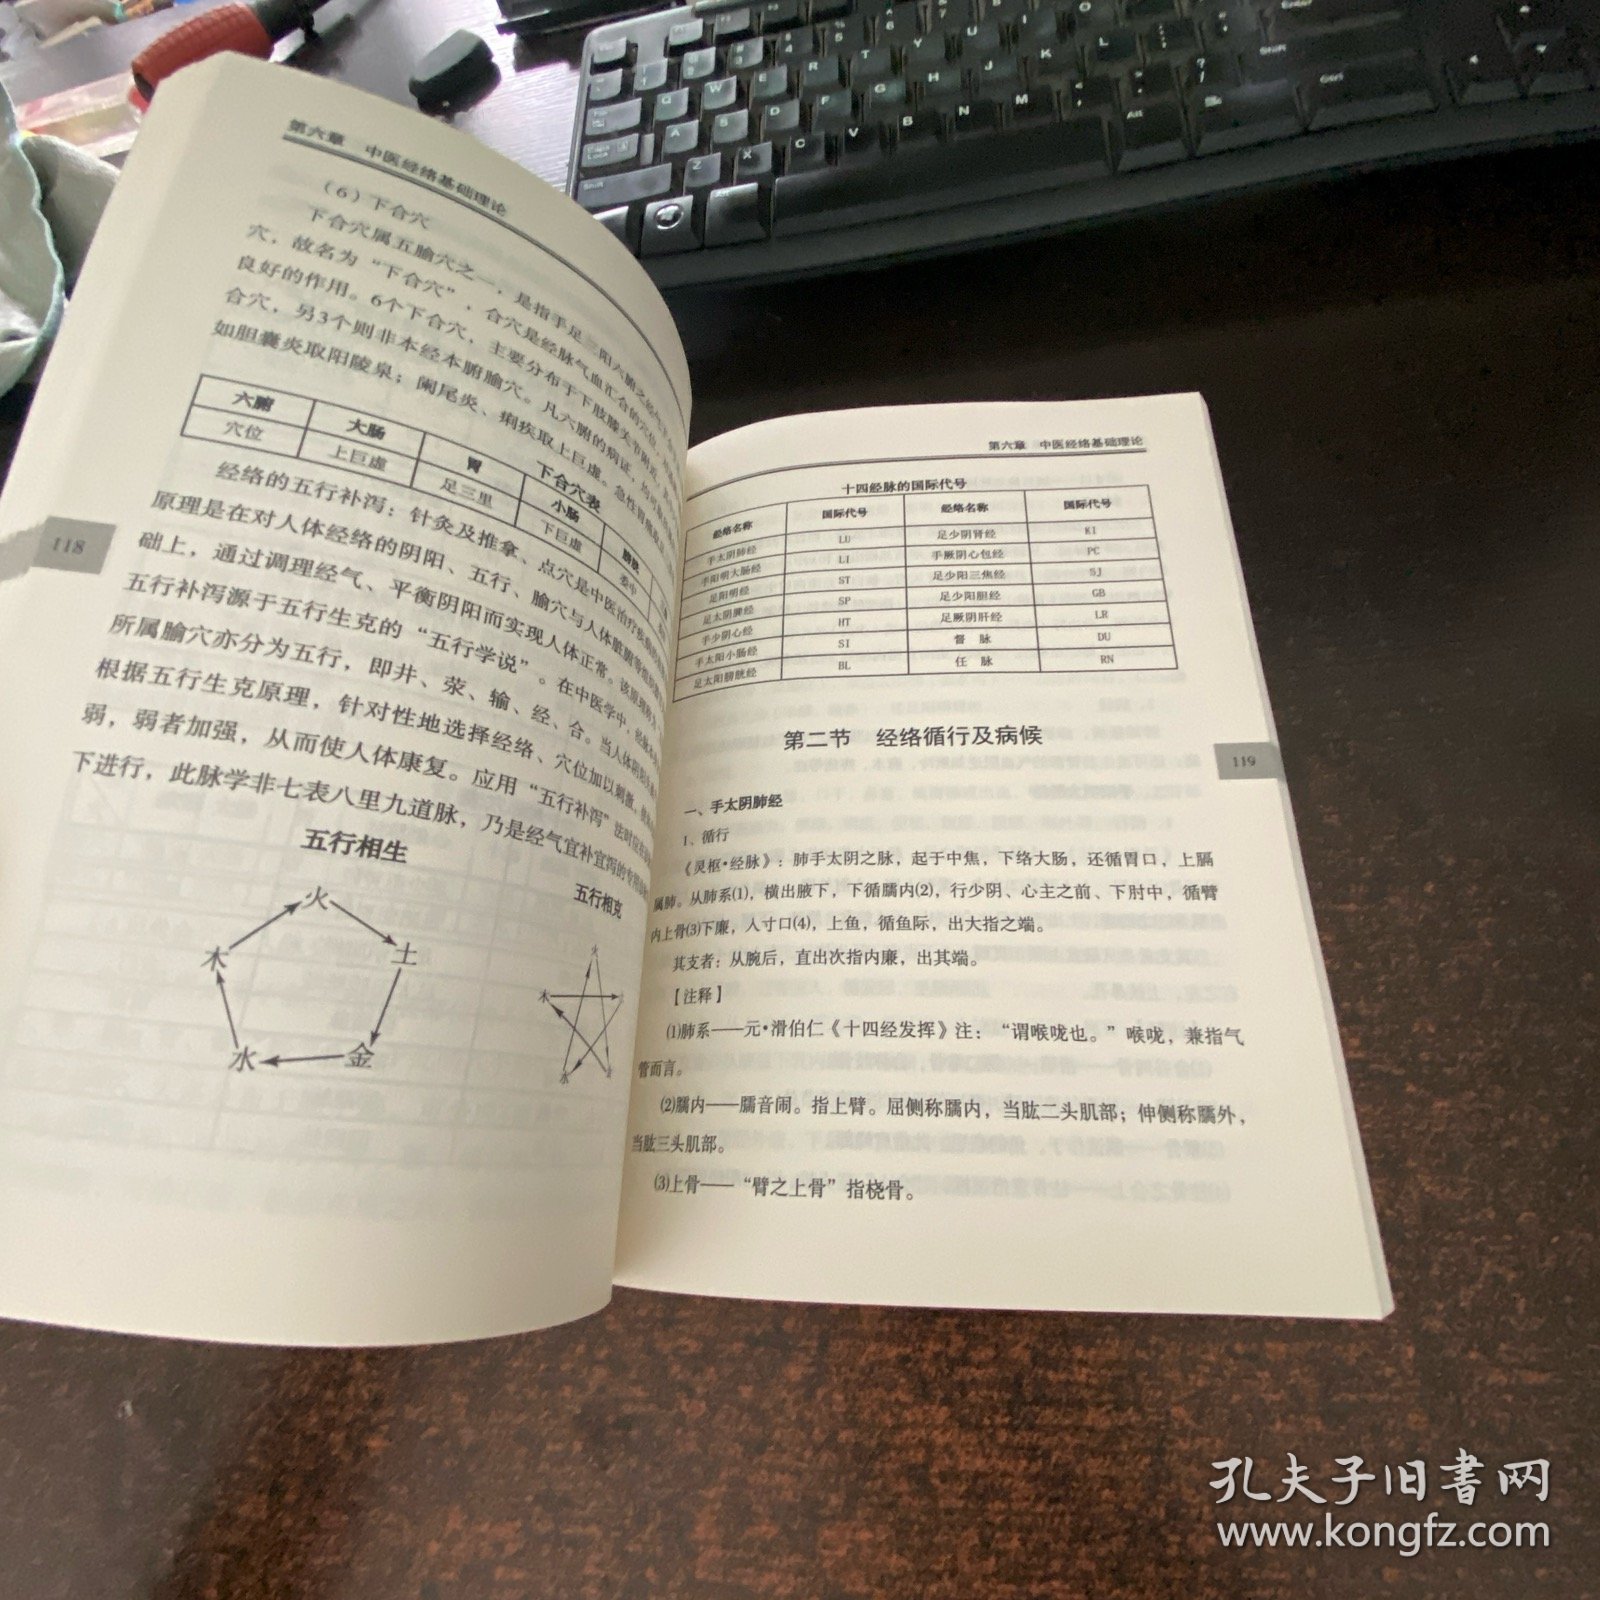 第六章 中医经络基础理论
（6）下合穴
下合穴属五腧穴之一，是指手足三阳六腑之经气
穴，故名为“下合穴”，合穴是经脉气血汇合的穴位，
良好的作用。6个下合穴，主要分布于下肢膝关节附近，
合穴，另3个则非本经本腑腧穴。凡六腑的病证，均可
如胆囊炎取阳陵泉；阑尾炎、痢疾取上巨虚。急性胃
下合穴表
六腑 大肠 胃 小肠 膀胱
穴位 上巨虚 足三里 下巨虚 委中
经络的五行补泻：针灸及推拿、点穴是中医治疗疾病的
原理是在对人体经络的阴阳、五行、腧穴与人体脏腑
础上，通过调理经气、平衡阴阳而实现人体正常。该原理
五行补泻源于五行生克的“五行学说”。在中医学中，经
所属腧穴亦分为五行，即井、荥、输、经、合。当人体阴阳
根据五行生克原理，针对性地选择经络、穴位加以刺激，
弱，弱者加强，从而使人体康复。应用“五行补泻”法时应
下进行，此脉学非七表八里九道脉，乃是经气宜补宜泻的专用
五行相生
五行相克
火
木 土
水 金
火
木
水
118
第六章 中医经络基础理论
十四经脉的国际代号
经络名称 国际代号 经络名称 国际代号
手太阴肺经 LU 足少阴肾经 KI
手阳明大肠经 LI 手厥阴心包经 PC
足阳明经 ST 足少阳三焦经 SJ
足太阴脾经 SP 足少阳胆经 GB
手少阴心经 HT 足厥阴肝经 LR
手太阳小肠经 SI 督 脉 DU
足太阳膀胱经 BL 任 脉 RN
第二节 经络循行及病候
119
一、手太阴肺经
1、循行
《灵枢·经脉》：肺手太阴之脉，起于中焦，下络大肠，还循胃口，上膈
属肺。从肺系⑴，横出腋下，下循臑内⑵，行少阴、心主之前、下肘中，循臂
内上骨⑶下廉，人寸口⑷，上鱼，循鱼际，出大指之端。
其支者：从腕后，直出次指内廉，出其端。
【注释】
⑴肺系——元·滑伯仁《十四经发挥》注：“谓喉咙也。”喉咙，兼指气
管而言。
⑵臑内——臑音闹。指上臂。屈侧称臑内，当肱二头肌部；伸侧称臑外，
当肱三头肌部。
⑶上骨——“臂之上骨”指桡骨。
孔夫子旧书网
www.kongfz.com